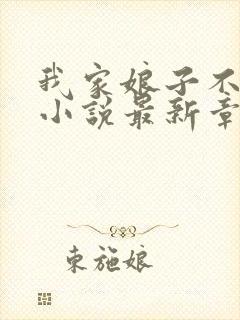 我家娘子不
小说最新章
东施娘